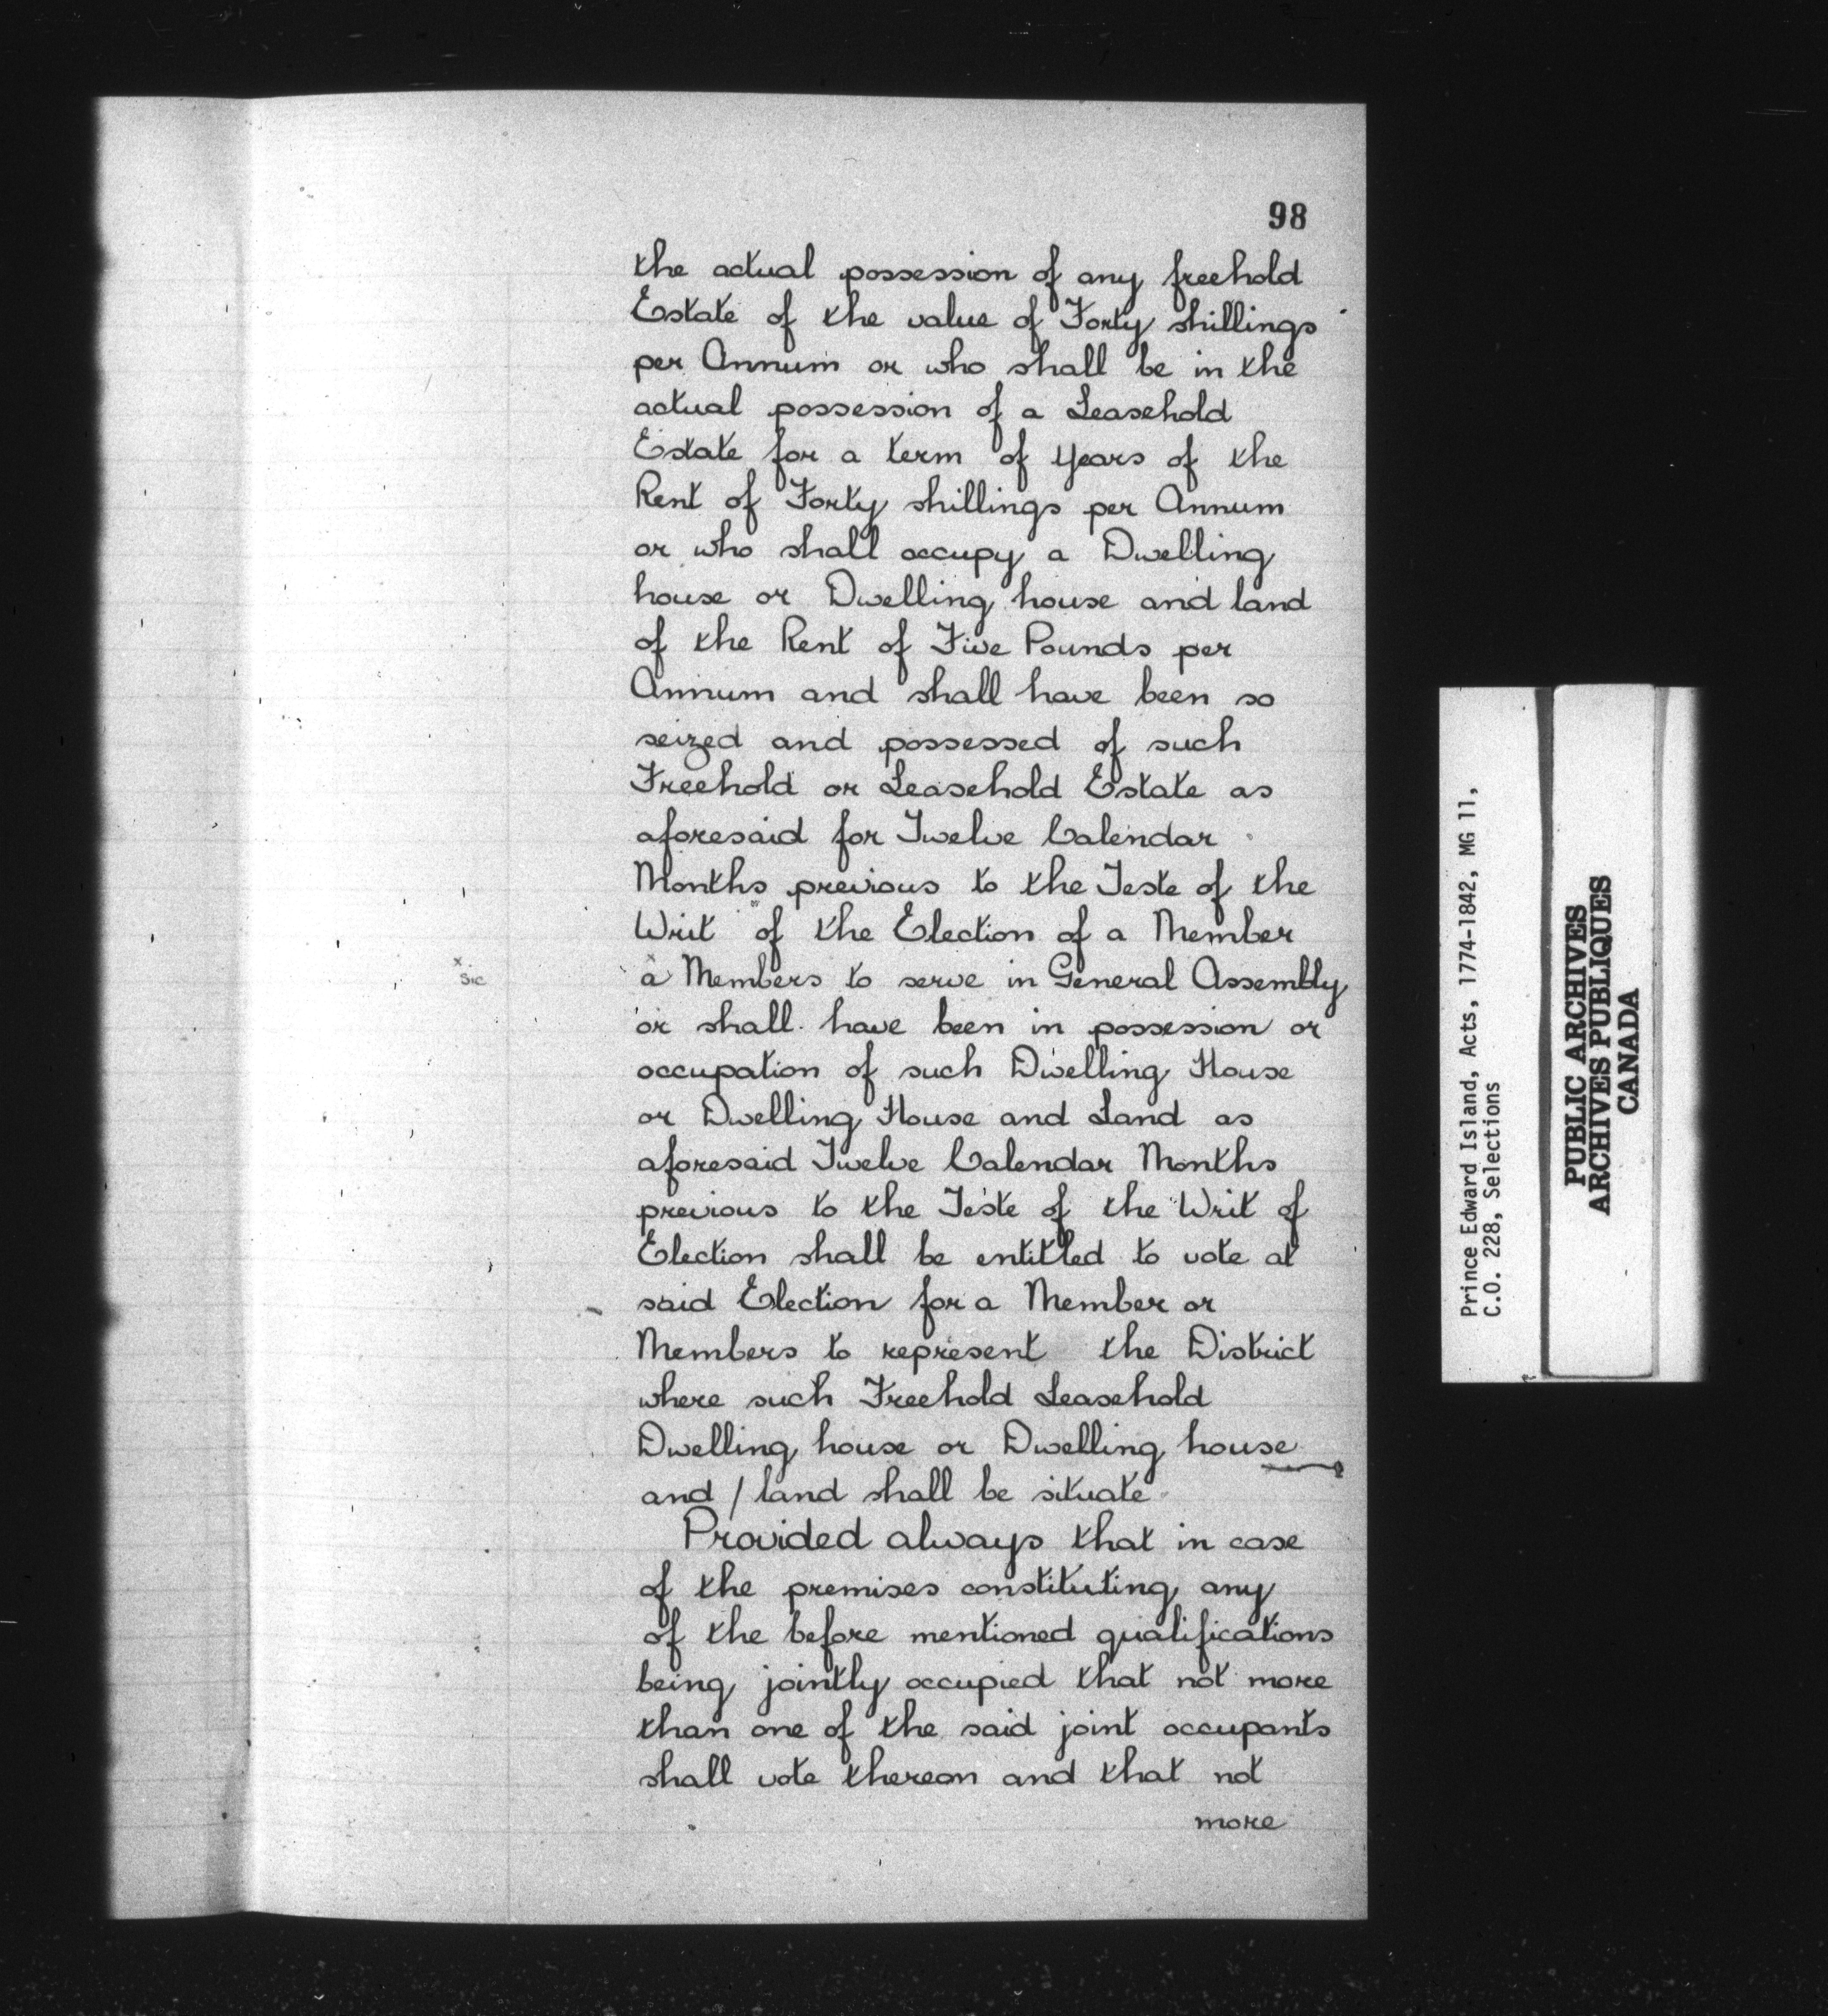 98
the actual possession of any freehold
Estate of the value of Forty shillings
per Annum or who shall be in the
actual possession of a Leasehold
Estate for a term of years of the
Rent of Forty shillings per Annum
or who shall occupy a Dwelling
house or Dwelling house and land
of the Rent of Five Pounds per
Annum and shall have been so
seized and possessed of such
Freehold or Leasehold Estate as
aforesaid for Twelve Calendar
Months previous to the Teste of the
Writ of the Election of a Member
x
sic
a Members to serve in General Assembly
or shall have been in possession or
occupation of such Dwelling House
or Dwelling House and Land as
aforesaid Twelve Calendar Months
previous to the Teste of the Writ of
Election shall be entitled to vote at
said Election for a Member or
Members to represent the District
where such Freehold Leasehold
Dwelling house or Dwelling house
and / land shall be situate
Provided always that in case
of the premises constituting any
of the before mentioned qualifications
being jointly occupied that not more
than one of the said joint occupants
shall vote thereon and that not
more
Prince Edward Island, Acts, 1774-1842, MG 11,
C.O. 228, Selections
PUBLIC ARCHIVES
ARCHIVES PUBLIQUES
CANADA